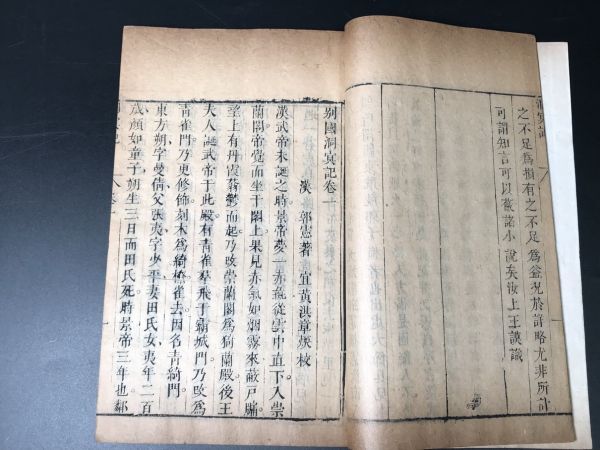 之不足為損有之不足為益況於詳略尤非所計
可謂知言可以蔽諸小說矣汝上王謨識
別國洞冥記卷一
漢 郭憲著 宜黃洪章煥校
漢武帝未誕之時景帝夢一赤彘從雲中直下入崇
蘭閣帝覺而坐于閣上果見赤氣如烟霧來蔽戶牖
望上有丹霞蓊鬱而起乃改崇蘭閣為猗蘭殿後王
夫人誕武帝于此殿有青雀群飛于霸城門乃改為
青雀門乃更修飾刻木為綺橑雀去因名青綺門
東方朔字曼倩父張夷字少平妻田氏女夷年二百
歲顏如童子朔生三日而田氏死時景帝三年也鄰